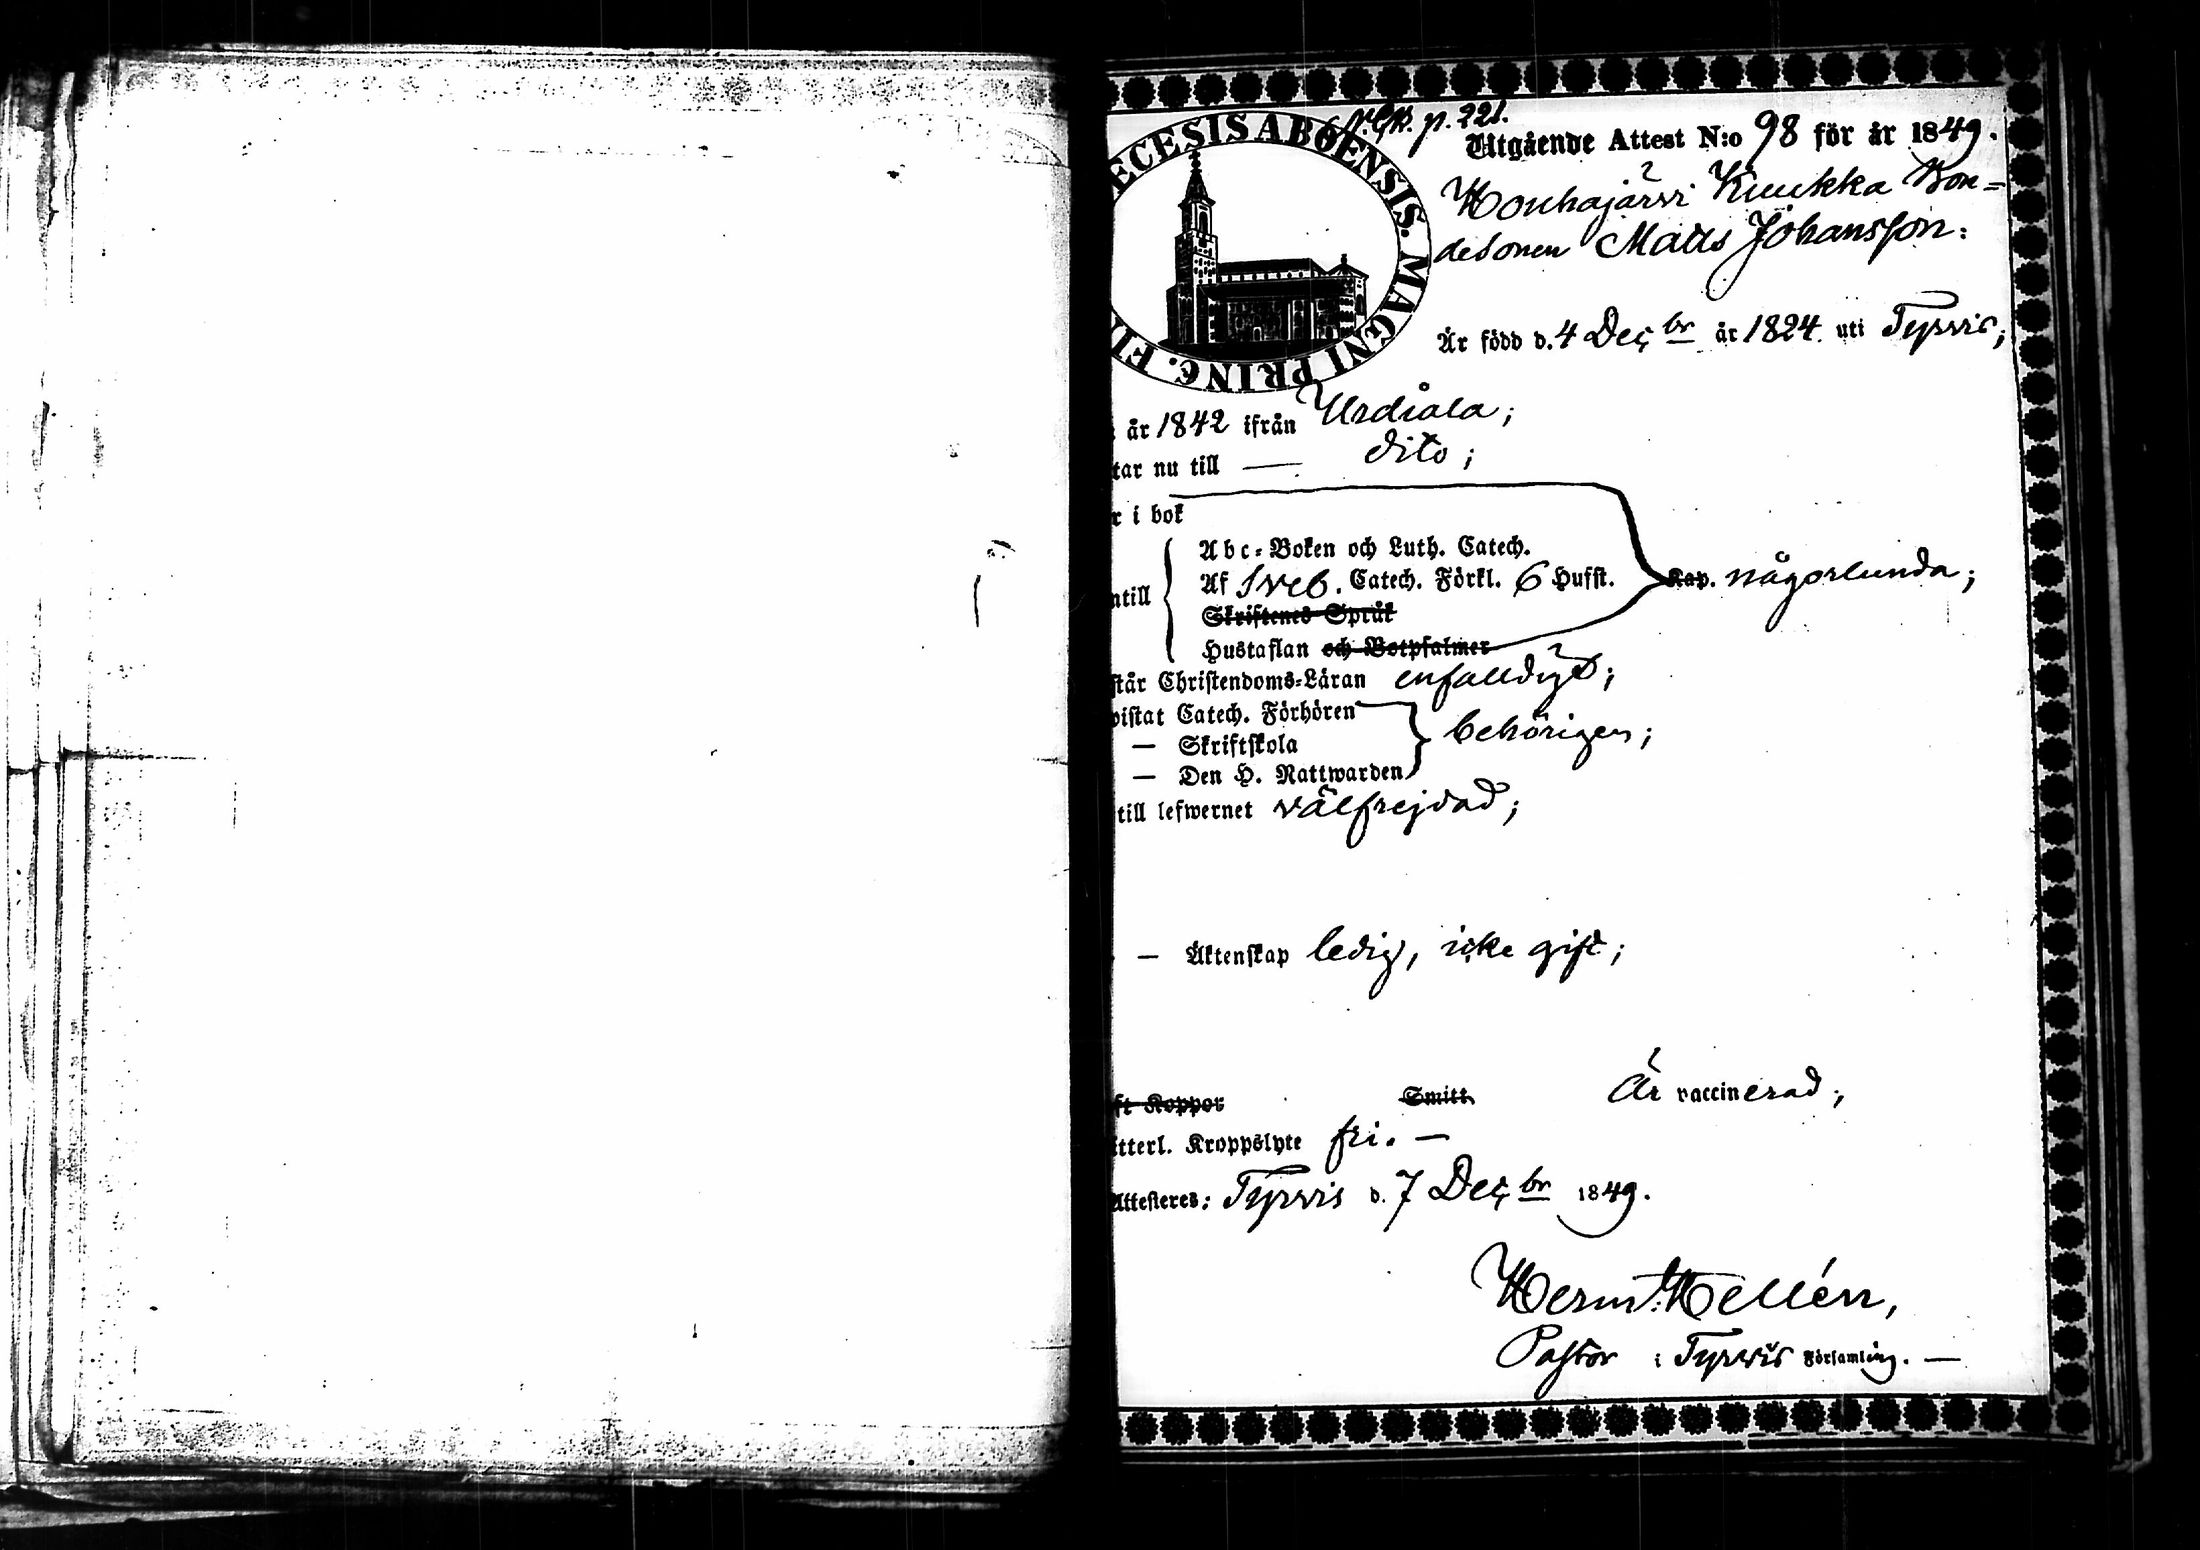 p. 221.
ECESIS ABOENSIS. MAGNI PRINC. FI
Utgående Attest N:o 98 för år 1849.
Houhajärvi Kuukka Bon=
desonen Matts Johansson:
Är född d. 4 Decbr år 1824 uti Tyrvis;
år 1842 ifrån Urdiala;
tar nu till — dito;
r i bok
Abc-Boken och Luth. Catech.
ntill Af Sveb. Catech. Förkl. 6 Hufst. Kap. någorlunda;
Skriftenes Språk
Hustaflan och Botpsalmer
står Christendoms-Läran enfaldigt;
vistat Catech. Förhören
— Skriftskola behörigen;
— Den H. Nattwarden
till lefwernet välfrejdad;
— Äktenskap ledig, icke gift;
ft Koppor Smitt Är vaccinerad;
itterl. Kroppslyte fri. —
Attesteres: Tyrvis d. 7 Decbr 1849.
Herm. Hellén,
Pastor i Tyrvis Församling. —